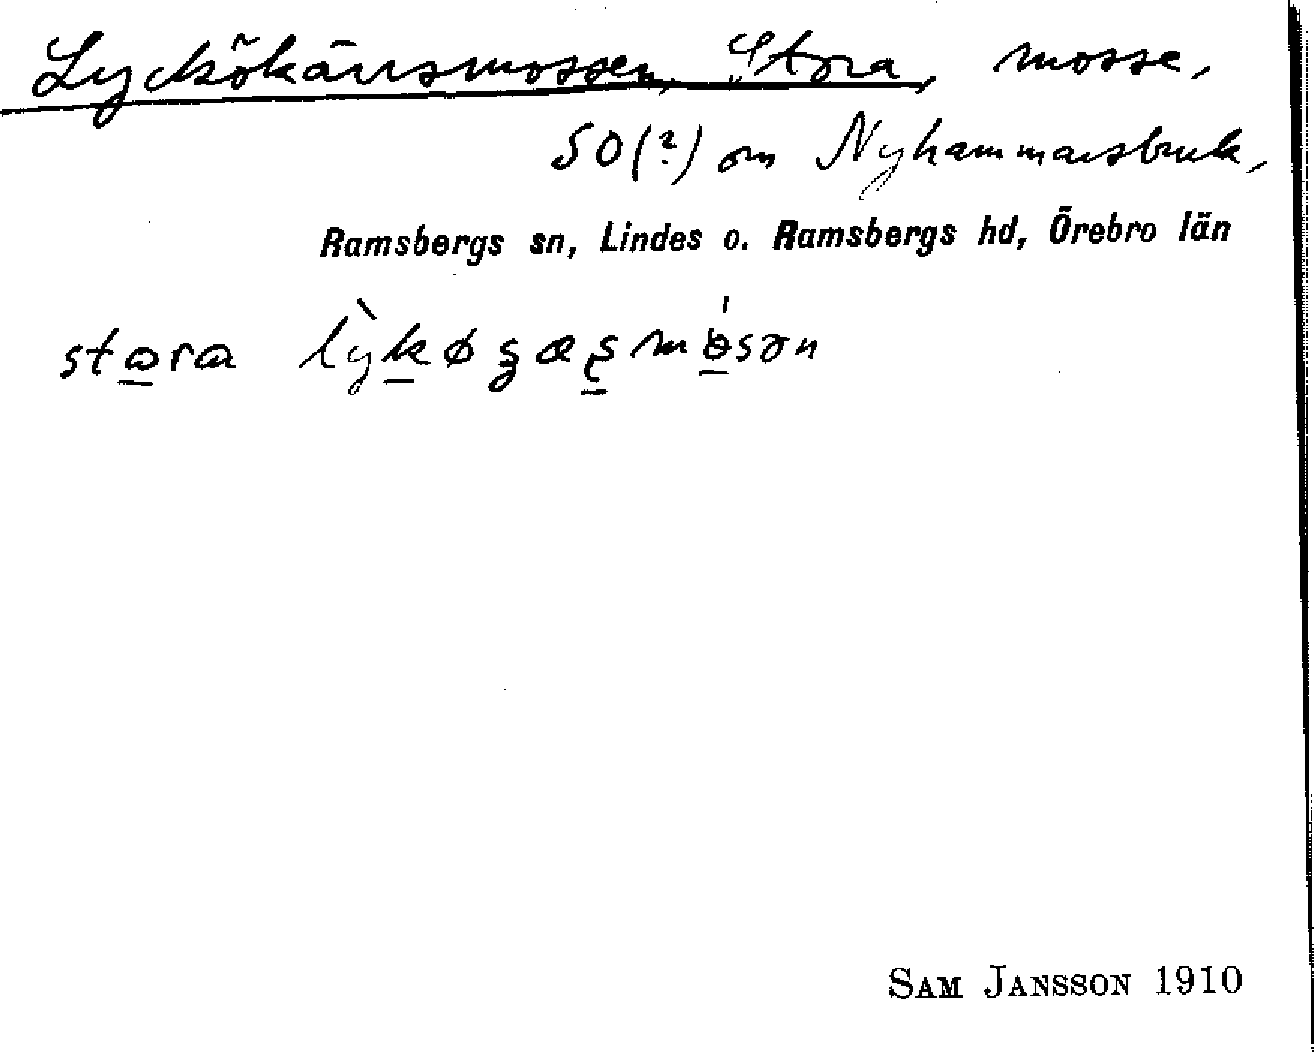 Lyckökärrsmossen, Stora, mosse,
SO(?) om Nyhammarsbruk,
Ramsbergs sn, Lindes o. Ramsbergs hd, Örebro län
stora
SAM JANSSON 1910